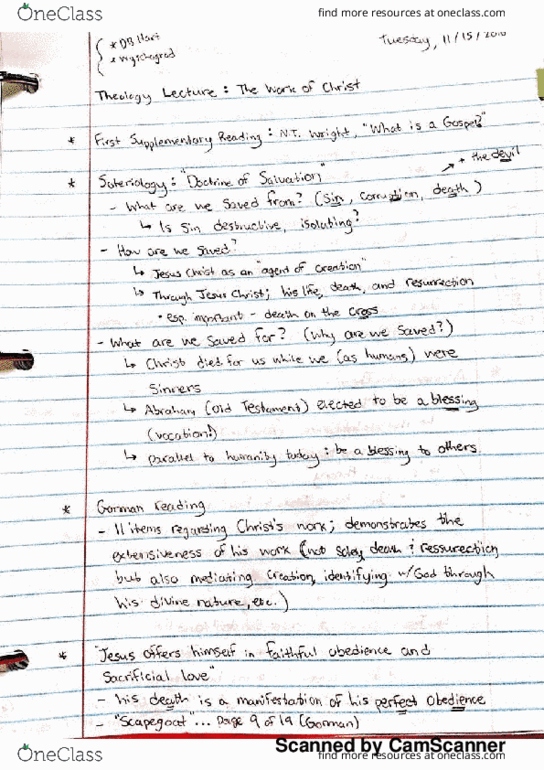 OneClass
find more resources at oneclass.com
* DB Hart
* Wyschogrod
Tuesday, 11/15/2010
Theology Lecture: The Work of Christ
* First Supplementary Reading: N.T. Wright, "What is a Gospel?"
* Soteriology: "Doctrine of Salvation"
+ the devil
- What are we saved from? (Sin, corruption, death)
↳ Is sin destructive, isolating?
- How are we saved?
↳ Jesus Christ as an "agent of creation"
↳ Through Jesus Christ; his life, death, and resurrection
• esp. important - death on the cross
- What are we saved for? (Why are we saved?)
↳ Christ died for us while we (as humans) were
Sinners
↳ Abraham (Old Testament) elected to be a blessing
(vocation!)
↳ parallel to humanity today: be a blessing to others
* Gorman Reading
- 11 items regarding Christ's work; demonstrates the
extensiveness of his work (not soley death & ressurection
but also mediating creation, identifying w/God through
his divine nature, etc.)
* "Jesus offers himself in faithful obedience and
Sacrificial love"
- his death is a manifestation of his perfect obedience
- "Scapegoat"... page 9 of 19 (Gorman)
Scanned by CamScanner
OneClass
find more resources at oneclass.com